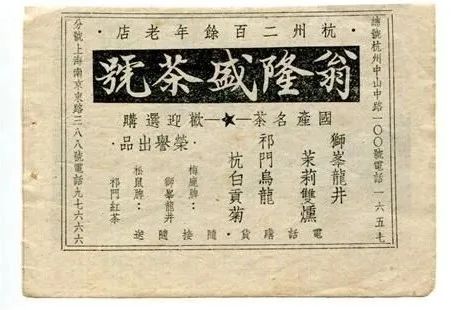 ·杭州二百餘年老店·
翁隆盛茶號
總號杭州中山中路一〇〇號電話一六五七
國產名茶—★—歡迎選購
獅峯龍井
茉莉雙燻
祁門烏龍
杭白貢菊
·榮譽出品·
梅鹿牌：獅峯龍井
松鼠牌：祁門紅茶
電話購貨·隨接隨送
分號上海南京東路三八八號電話九七六六六